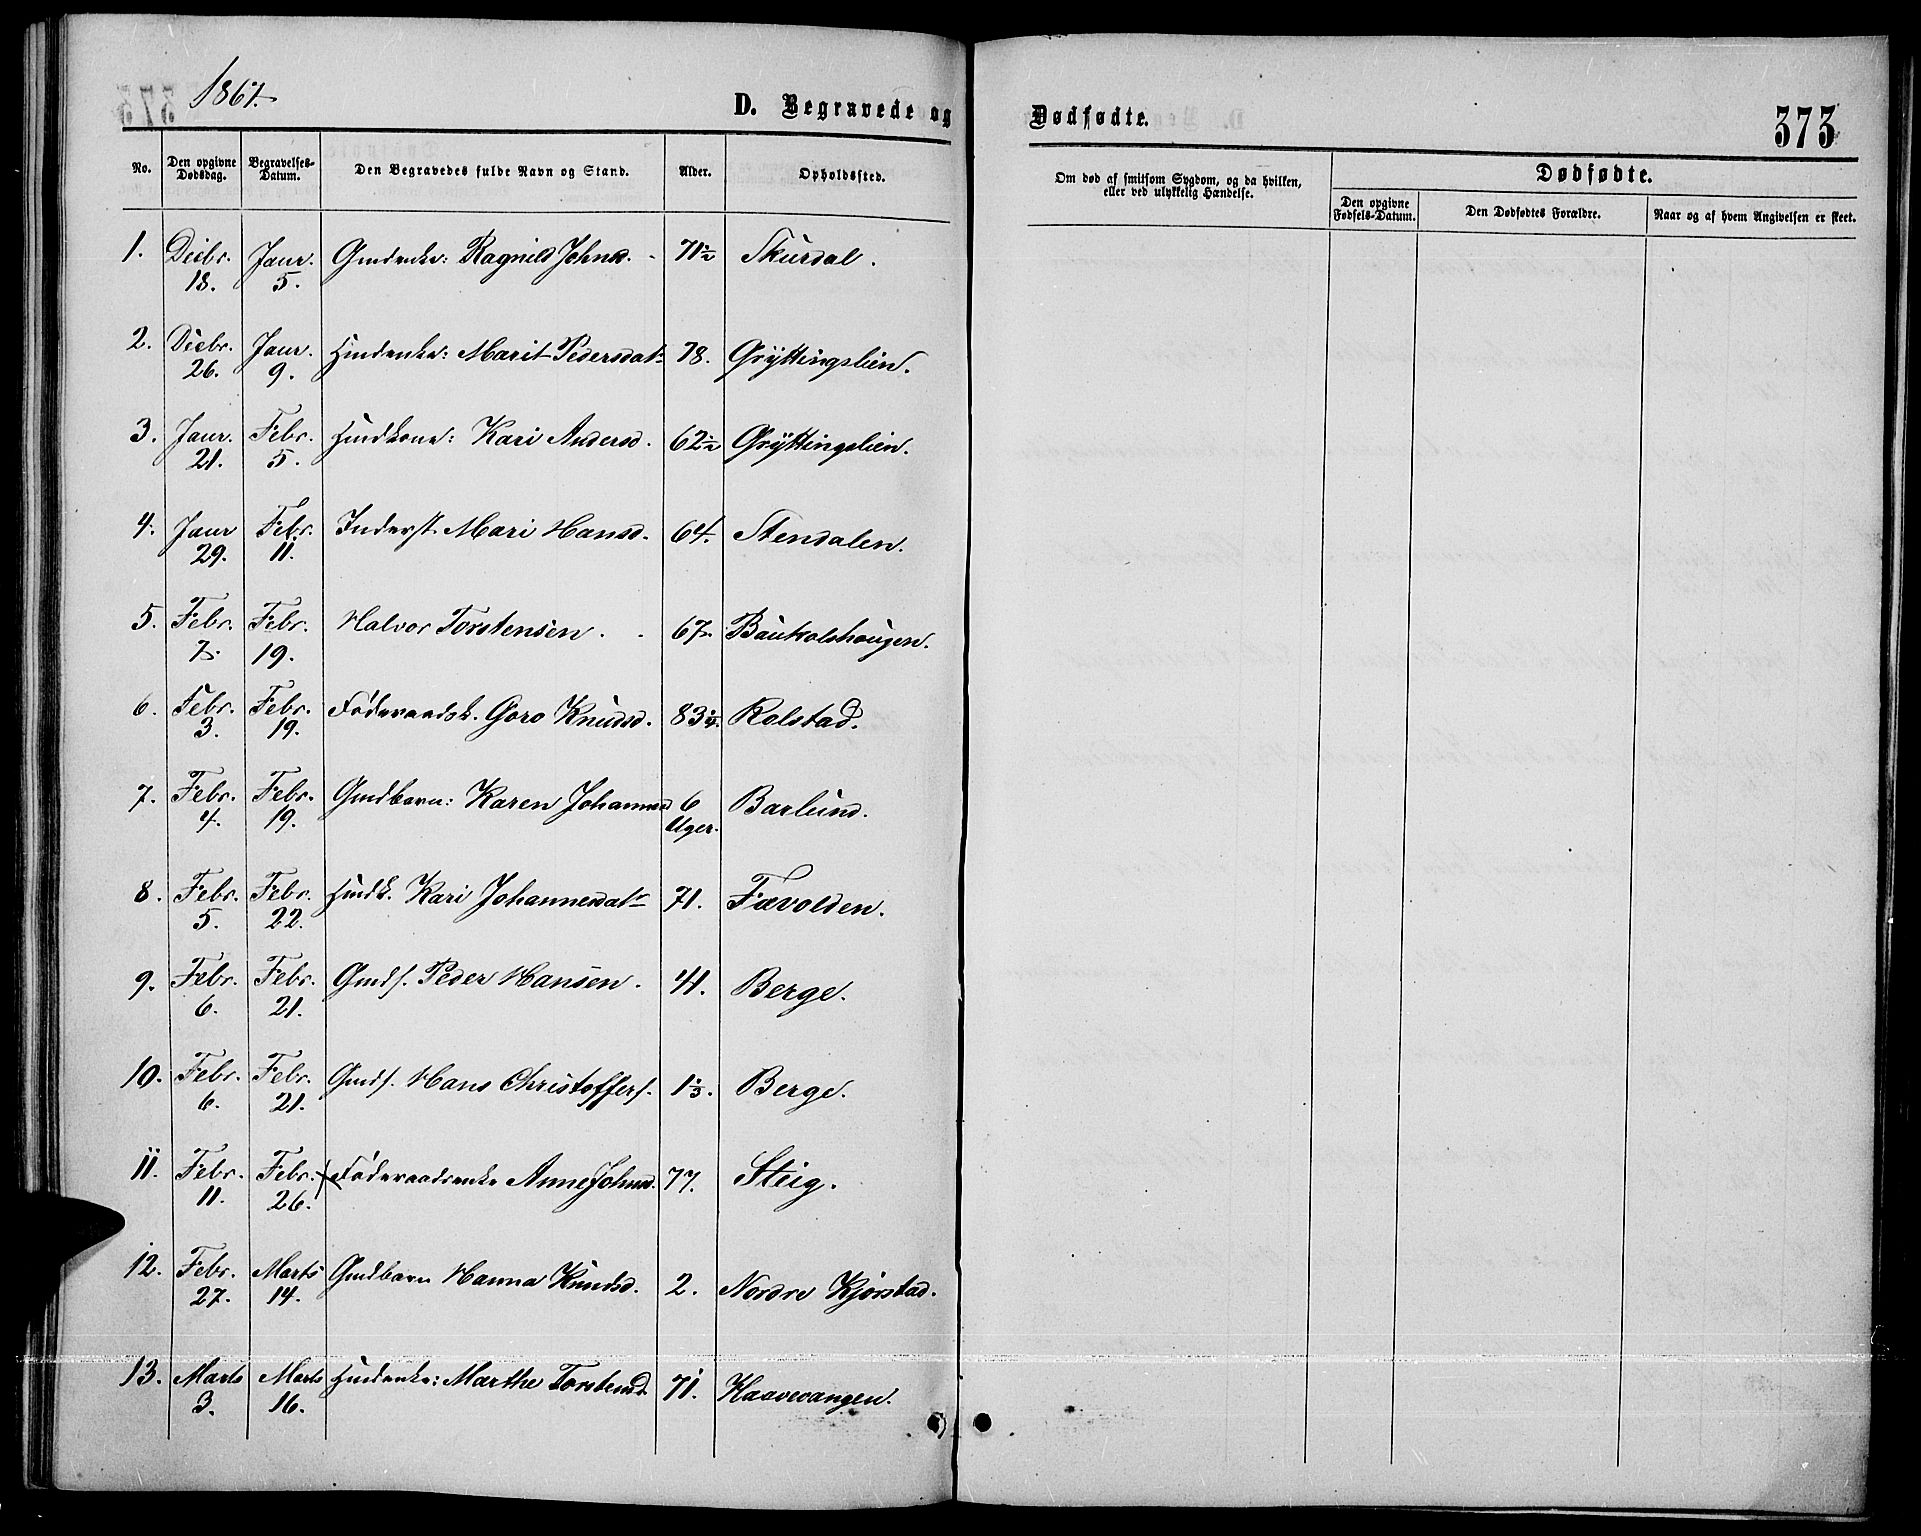 1867.
D. Begravede og Dødfødte.
373
No.
Den opgivne Dødsdag.
Begravelses-Datum.
Den Begravedes fulde Navn og Stand.
Alder.
Opholdssted.
Om død af smitsom Sygdom, og da hvilken, eller ved ulykkelig Hændelse.
Dødfødte.
Den opgivne Fødsels-Datum.
Den Dødfødtes Forældre.
Naar og af hvem Angivelsen er skeet.
1. Decbr. 18. Janr. 5. Gmdenke: Ragnild Johnsd. 71½ Skurdal.
2. Decbr. 26. Janr. 9. Hmdenke: Marit Pedersdatr 78. Gryttingslien.
3. Janr. 21. Febr. 5. Hmdkone: Kari Andersd. 62½ Gryttingslien.
4. Janr 29. Febr. 11. Inderst. Mari Hansd. 64. Stendalen.
5. Febr. 7. Febr. 19. Halvor Torstensen. 67. Baukolshaugen.
6. Febr. 3. Febr. 19. Føderaadsk. Goro Knudsd. 83¼ Kolstad.
7. Febr. 4. Febr. 19. Gmdbarn: Karen Johannesd 6 Uger. Barlund.
8. Febr. 5. Febr. 22. Hmdk. Kari Johannesdatr 71. Fævolden.
9. Febr. 6. Febr. 21. Gmds. Peder Hansen. 41. Berge.
10. Febr. 6. Febr. 21. Gmds. Hans Christoffers. 1⅓. Berge.
11. Febr. 11. Febr. 26. Føderaadsenke Anne Johnsd. 77. Steig.
12. Febr. 27. Marts 14. Gmdbarn Hanna Knudsd. 2. Nordre Kjørstad.
13. Marts 3. Marts 16. Hmdenke: Marthe Torstensd. 71. Kaavevangen.